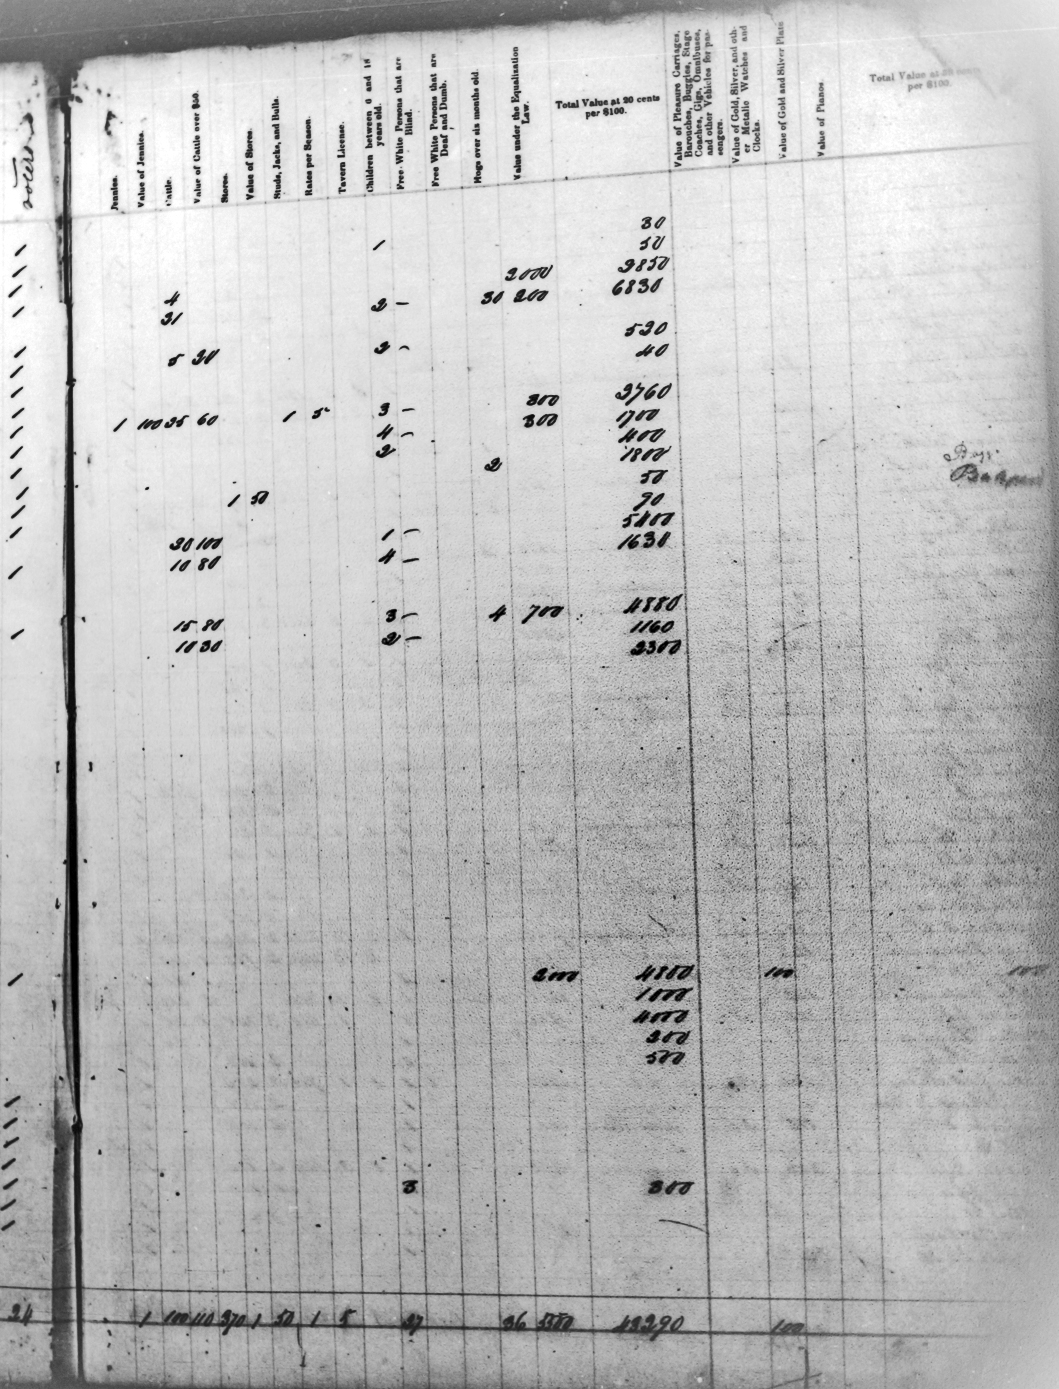 voters
Jennies.
Value of Jennies.
Cattle.
Value of Cattle over $50.
Stores.
Value of Stores.
Studs, Jacks, and Bulls.
Rates per Season.
Tavern License.
Children between 6 and 18 years old.
Free White Persons that are Blind.
Free White Persons that are Deaf and Dumb.
Hogs over six months old.
Value under the Equalization Law.
Total Value at 20 cents per $100.
Value of Pleasure Carriages, Barouches, Buggies, Stage Coaches, Gigs, Omnibuses, and other Vehicles for passengers.
Value of Gold, Silver, and other Metalic Watches and Clocks.
Value of Gold and Silver Plate
Value of Pianos.
Total Value at 30 cents per $100.
30
1 50
2000 2850
4 2 – 30 200 6830
21
520
5 20 2 – 40
300 2760
1 100 35 60 1 5 3 – 300 1700
4 – 400
2 1800
2 50
1 50 90
5400
20 100 1 – 1630
10 80 4 –
3 – 4 700 4880
15 80 1160
10 30 2 – 2300
2000 4800 100 100
1000
4000
200
500
3 300
24 1 100 110 370 1 50 1 5 27 36 5500 43290 100